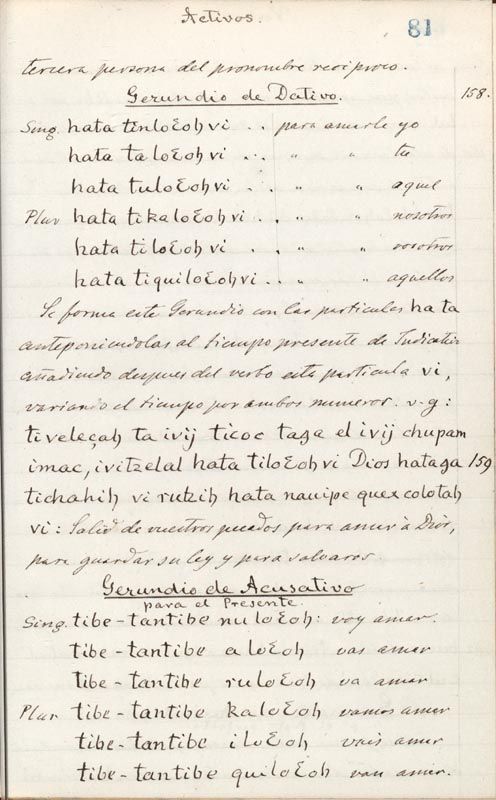 Activos.
81
tercera persona del pronombre reciproco.
Gerundio de Dativo. 158.
Sing. hata tinloƐoh vi . . para amarle yo
hata ta loƐoh vi . . " " tu
hata tuloƐoh vi . . " " aquel
Plur hata tikaloƐoh vi . . " " nosotros
hata tiloƐoh vi . . " " vosotros
hata tiquiloƐoh vi . . " " aquellos
Se forma este Gerundio con las particulas hata
anteponiendolas al tiempo presente de Indicativo
añadiendo despues del verbo esta particula vi,
variando el tiempo por ambos numeros. v.g:
tiveleçah ta ivij ticoc taga el ivij chupam
imac, ivitzelal hata tiloƐoh vi Dios hataga 159
tichahih vi rutzih hata nauipe quex colotah
vi: Salid de vuestros pecados para amar à Dios,
para guardar su ley y para salvaros.
Gerundio de Acusativo
para el Presente.
Sing. tibe - tantibe nuloƐoh: voy amar.
tibe - tantibe a loƐoh vas amar
tibe - tantibe ruloƐoh va amar
Plur tibe - tantibe kaloƐoh vamos amar
tibe - tantibe iloƐoh vais amar
tibe - tantibe quiloƐoh van amar.